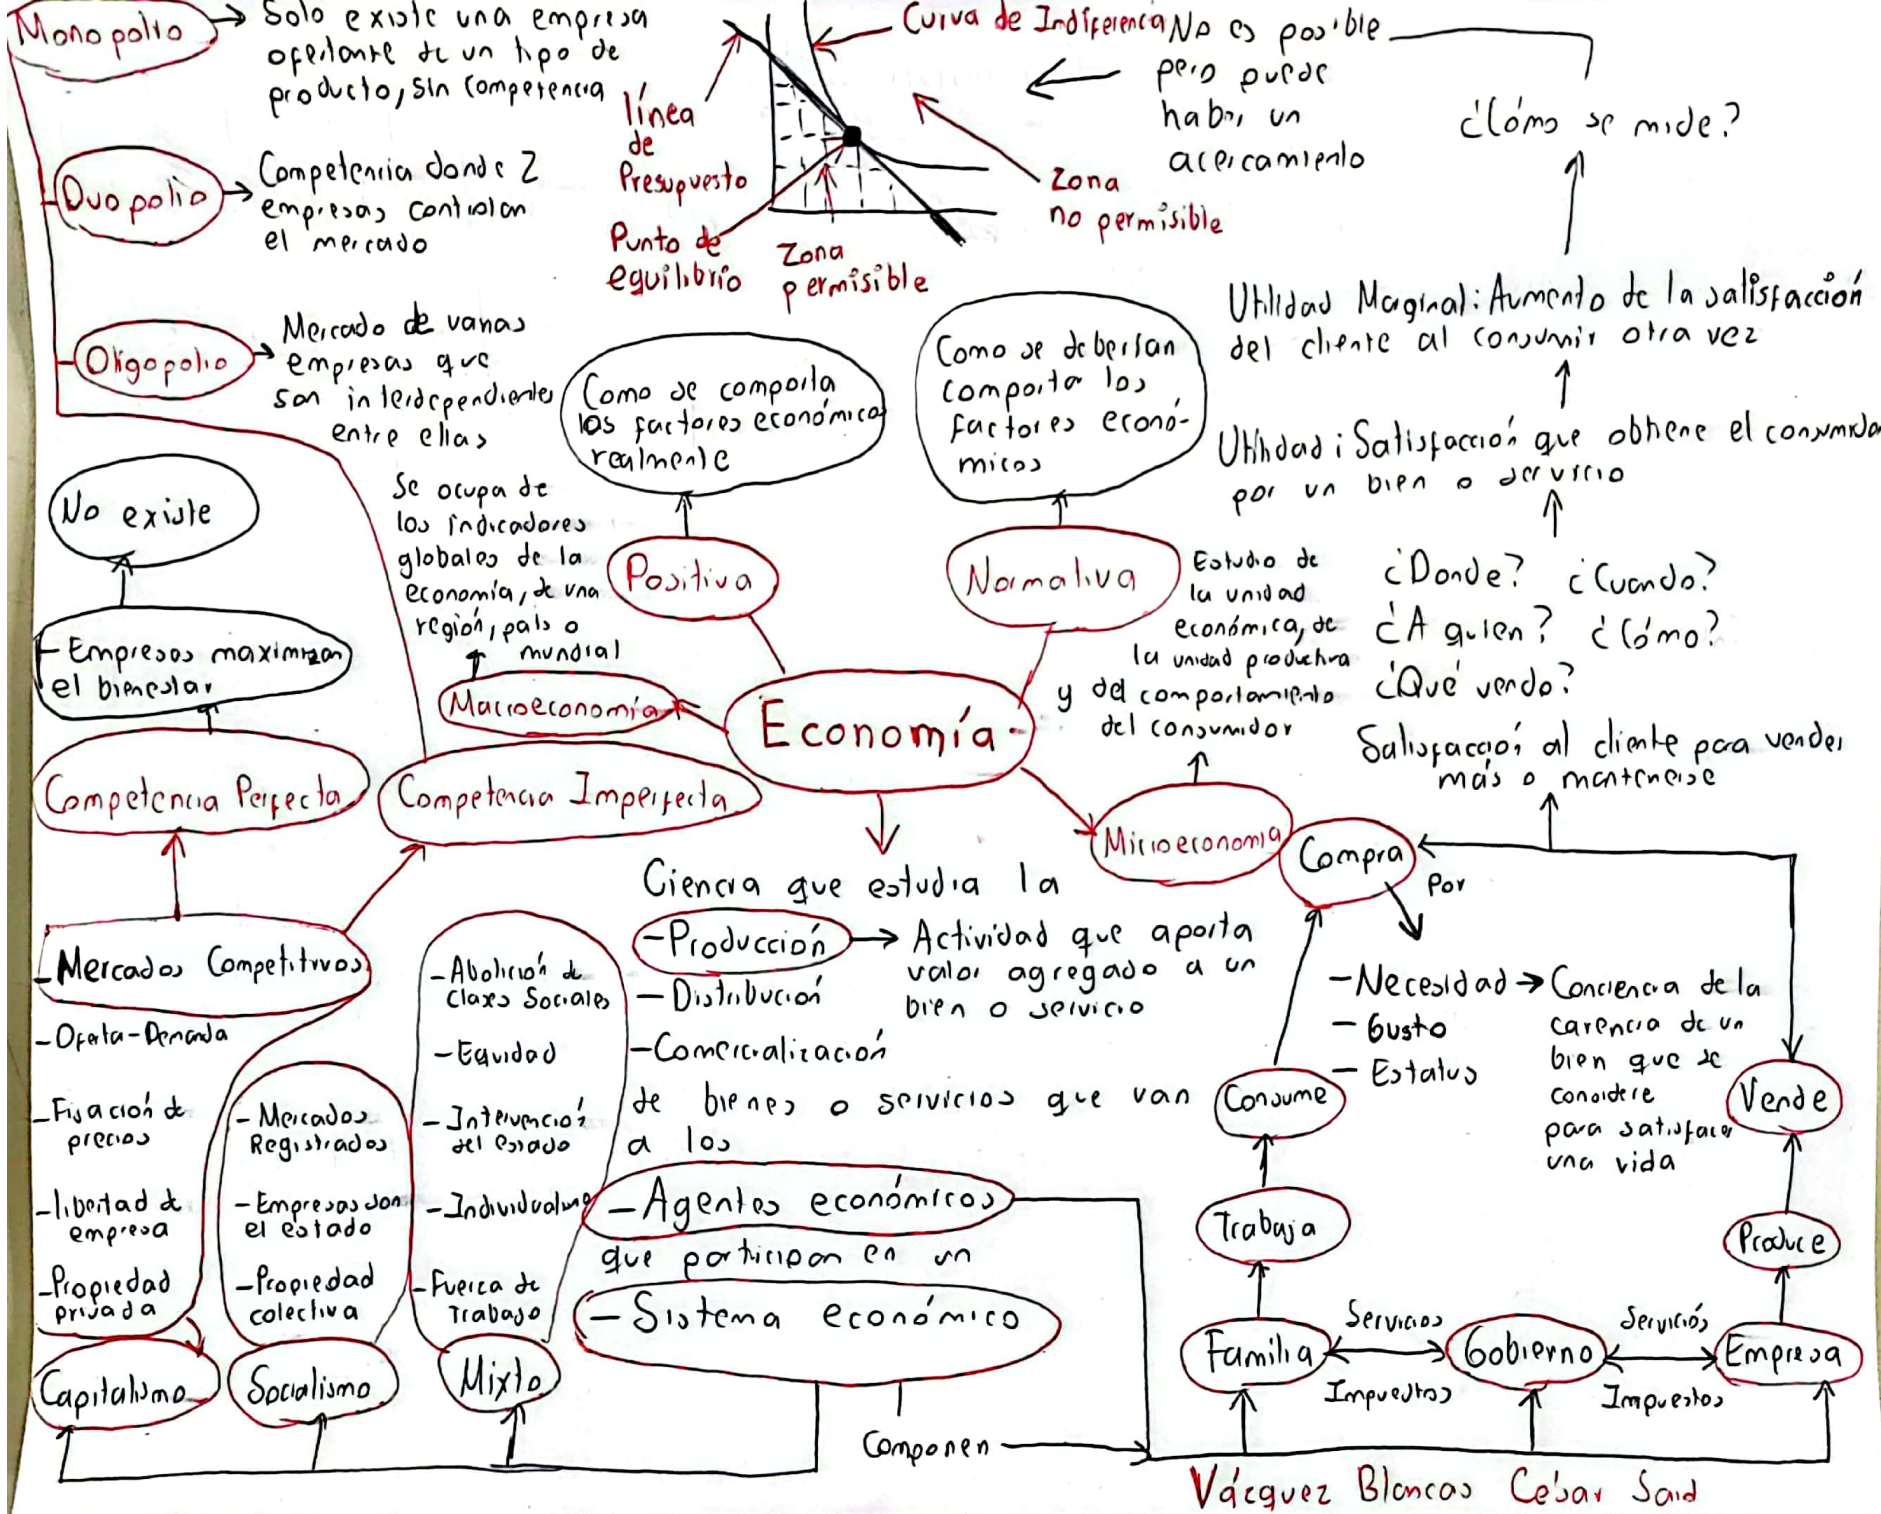 Monopolio
Solo existe una empresa
ofertante de un tipo de
producto, sin competencia
Duopolio
Competencia donde 2
empresas controlan
el mercado
Oligopolio
Mercado de varias
empresas que
son interdependientes
entre ellas
línea
de
Presupuesto
Punto de
equilibrio
Zona
permisible
Curva de Indiferencia
Zona
no permisible
No es posible
pero puede
haber un
acercamiento
¿Cómo se mide?
Utilidad Marginal: Aumento de la satisfacción
del cliente al consumir otra vez
Utilidad: Satisfacción que obtiene el consumidor
por un bien o servicio
¿Donde? ¿Cuando?
¿A quien? ¿Cómo?
¿Qué vendo?
Satisfacción al cliente para vender
más o mantenerse
Como se comporta
los factores económicos
realmente
Positiva
Como se deberían
comporta los
factores econó-
micos
Normativa
Se ocupa de
los indicadores
globales de la
economía, de una
región, país o
mundial
Macroeconomía
Economía
Estudio de
la unidad
económica, de
la unidad productiva
y del comportamiento
del consumidor
Microeconomía
No existe
- Empresas maximizan
el bienestar
Competencia Perfecta
Competencia Imperfecta
- Mercados Competitivos
- Oferta-Demanda
- Fijación de
precios
- libertad de
empresa
- Propiedad
privada
Capitalismo
- Mercados
Registrados
- Empresas son
el estado
- Propiedad
colectiva
Socialismo
- Abolición de
Clases Sociales
- Equidad
- Intervención
del estado
- Individualismo
- Fuerza de
Trabajo
Mixto
Ciencia que estudia la
- Producción
- Distribución
- Comercialización
Actividad que aporta
valor agregado a un
bien o servicio
de bienes o servicios que van
a los
- Agentes económicos
que participan en un
- Sistema económico
Componen
Compra
Por
- Necesidad
- Gusto
- Estatus
Conciencia de la
carencia de un
bien que se
considere
para satisfacer
una vida
Consume
Trabaja
Familia
Servicios
Impuestos
Gobierno
Servicios
Impuestos
Vende
Produce
Empresa
Vázquez Blancas César Said